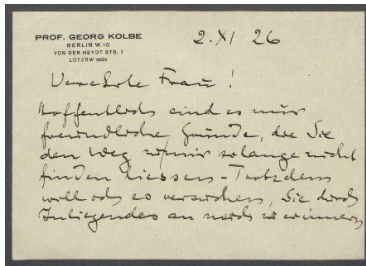 PROF. GEORG KOLBE
BERLIN W. 10
VON DER HEYDT STR. 7
LÜTZOW
2. XI 26
Verehrte Frau!
Hoffentlich sind es nur
freundliche Gründe, die Sie
den Weg zu mir solange nicht
finden liessen - Trotzdem
will ich es versuchen, Sie durch
Inliegendes an mich zu erinnern